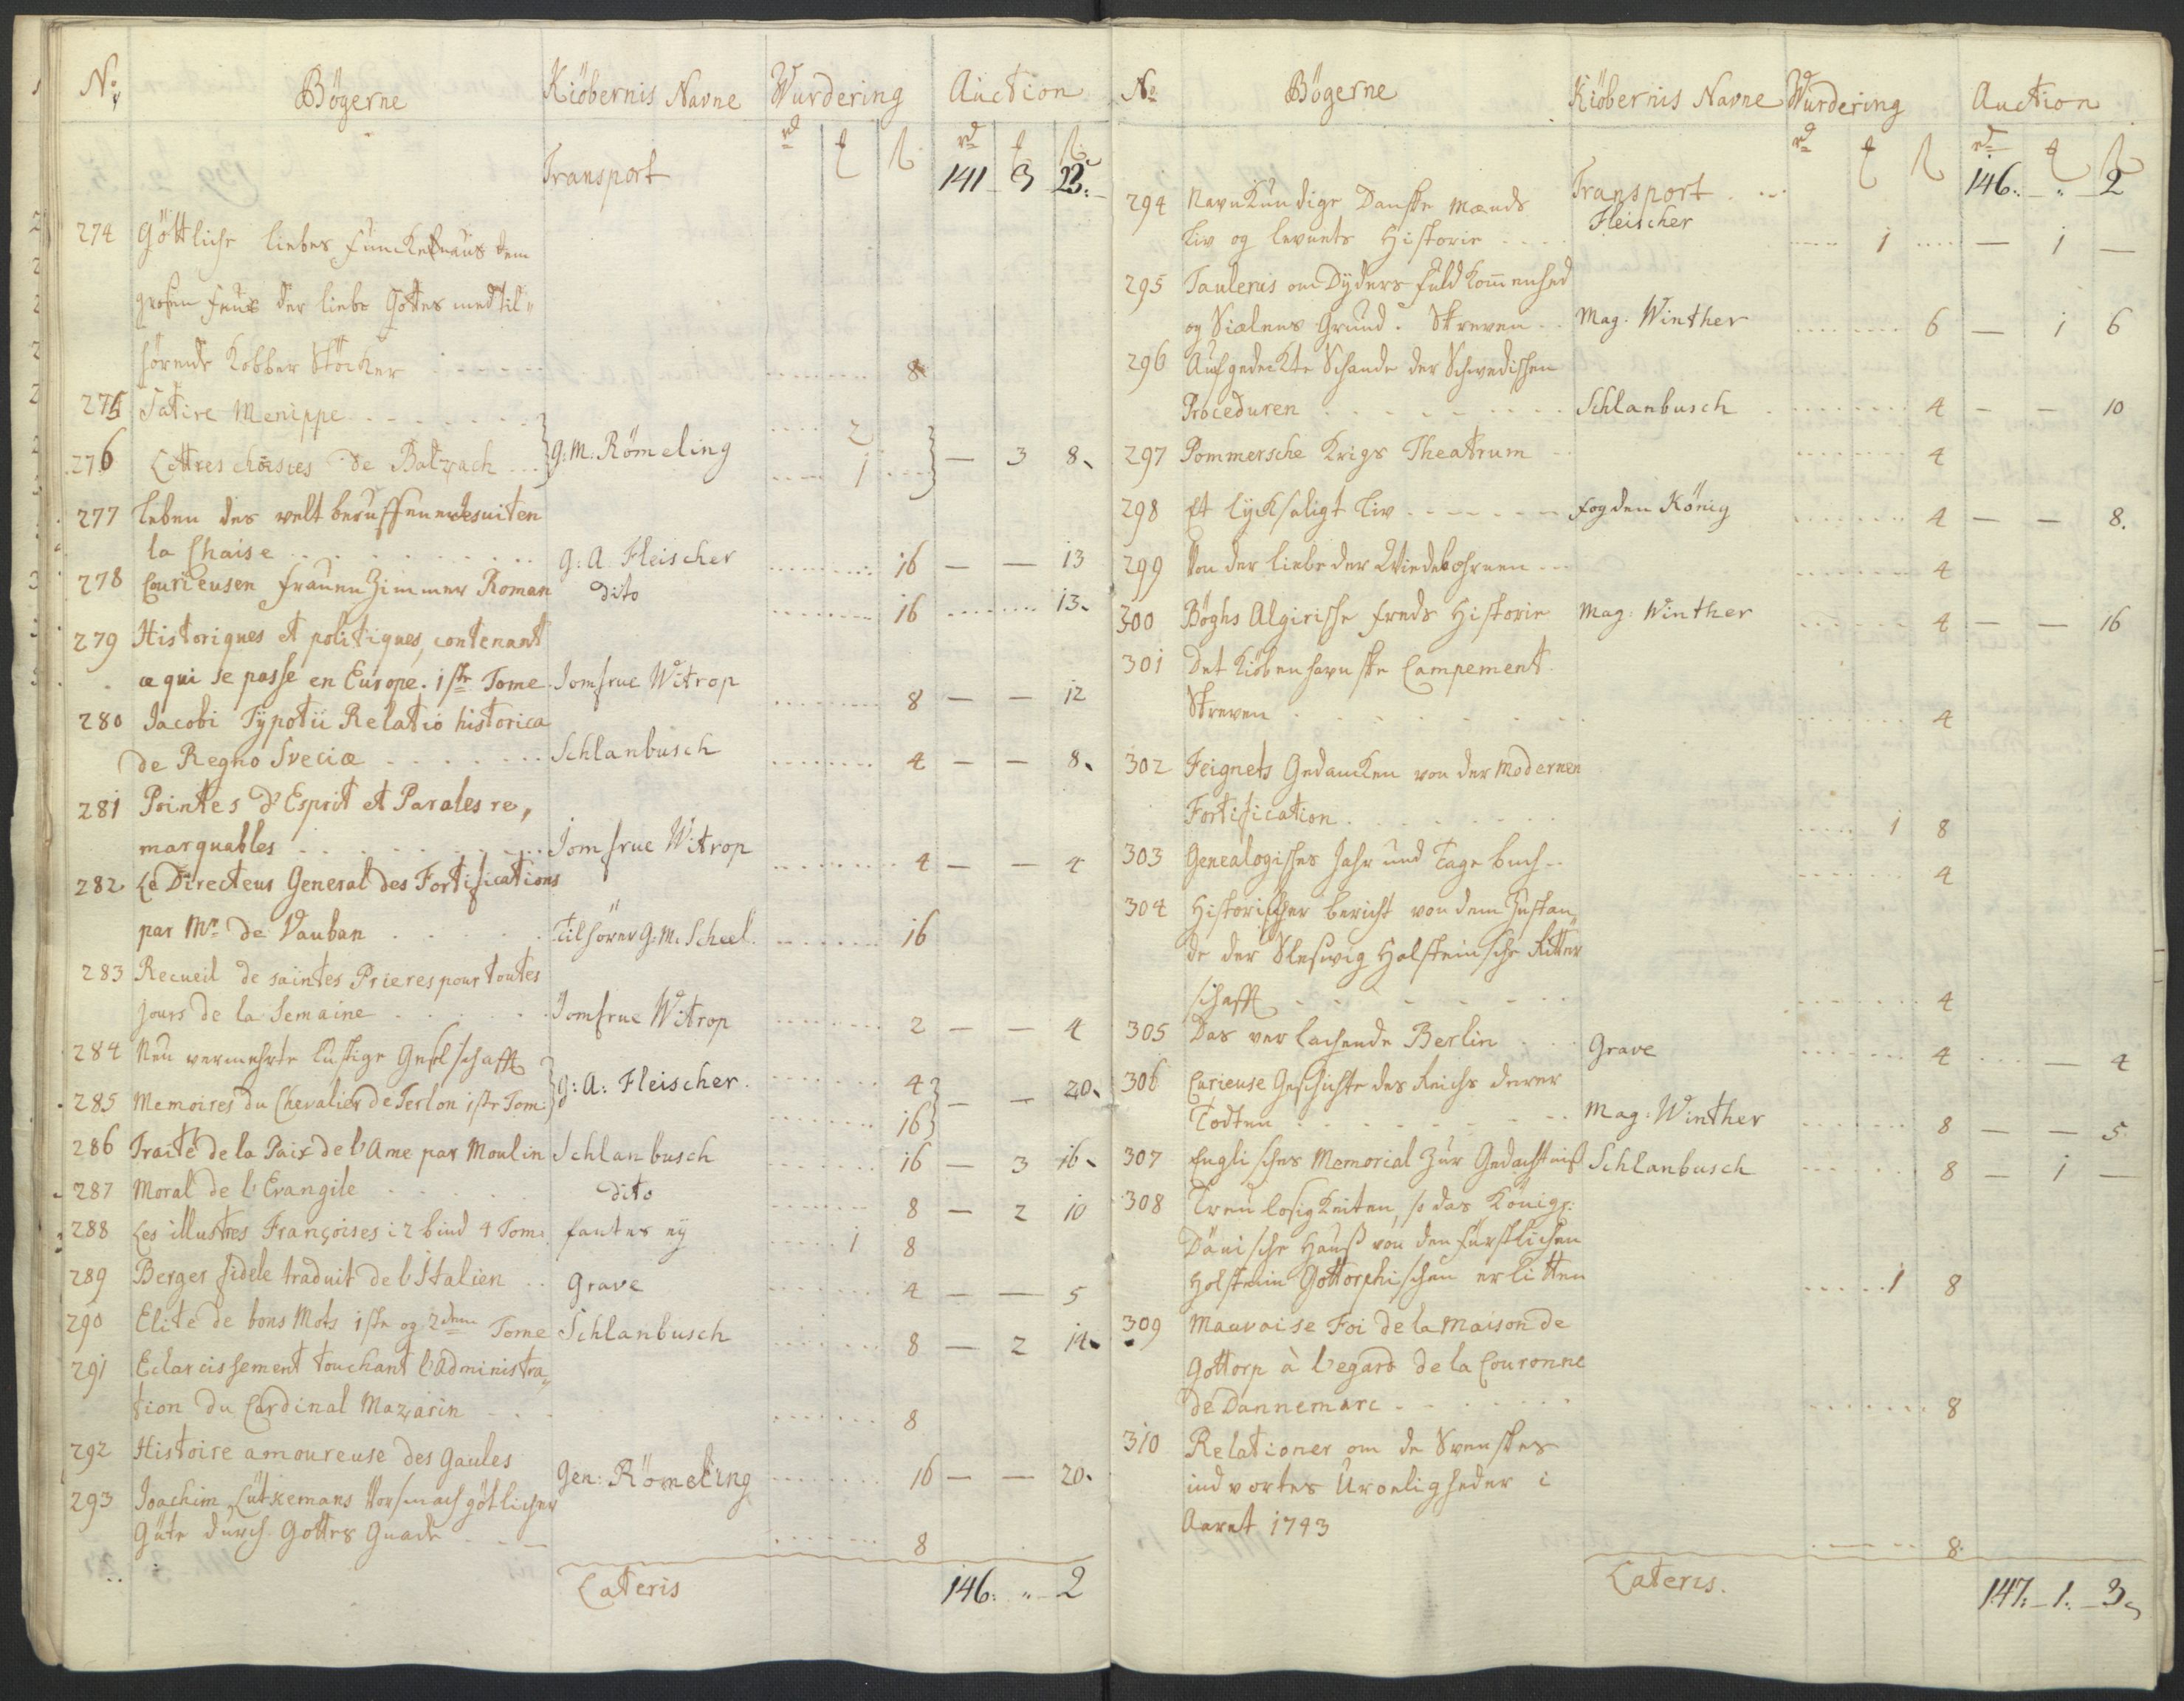 No Bøgerne Kiöbernis Navne Wurdering Auction
rd
Transport 141 3 23.
274 Göttliche liebes funcken aus dem
grosen feuer der liebe Gottes med til„
hörende Kobber Stöcker 8
275 Satire Menippe 2
276 Lettres choisies de Balzach } G: M: Römeling 1 } — 3 8.
277 leben des welt beruffenen Jesuiten
la Chaise G: A Fleischer 16 — — 13
278 Courieusen frauen Zimmer Roman dito 16 13.
279 Historiques et politiques, contenant
ce qui se passe en Europe. 1ste Tome Jomfrue Witrop 8 — — 12
280 Jacobi Typotii Relatio historica
de Regno Sveciæ Schlanbusch 4 — — 8.
281 Pointes d'Esprit et Paroles re„
marquables Jomfrue Witrop 4 — — 4
282. Le Directeur General des Fortifications
par Mr de Vauban Tilhörer G: M: Scheel. 16
283 Recueil de saintes Prieres pour toutes
jours de la Semaine Jomfrue Witrop 2 — — 4
284 Neu vermehrte lustige Geselschafft 4
285 Memoires du Chevalier de Terlon 1ste Tom: } G: A: Fleischer. 16 } — — 20.
286 Traité de la Paix de l'Ame par Moulin Schlanbusch 16 — 3 16.
287 Moral de l'Evangile dito 8 — 2 10
288 Les illustres Françoises i 2 bind 4 Tom: fantes ey 1 8
289 Berger fidele traduit de l'Italien Grave 4 — — 5
290 Elite de bons Mots 1ste og 2den Tome Schlanbusch 8 — 2 14.
291 Eclarcissement touchant l'Administra„
tion du Cardinal Mazarin 8
292 Histoire amoureuse des Gaules Gen: Römeling 16 — — 20.
293 Joachim Lütkemans Vorsmach götlicher
Güte durch Gottes Gnade 8
Lateris 146: „ 2
No Bøgerne Kiöbernis Navne Wurdering Auction
rd
Transport 146: „ 2
294 Navnkundige Danske Mænds
liv og levnets Historie Fleischer 1 — 1 —
295 Taulerus om Dyders fuldkommenhed
og Siælens Grund. Skreven Mag. Winther 6 — 1 6
296 Aufgedeckte Schande der Schwedischen
Proceduren Schlanbusch 4 — — 10
297 Pommersche Krigs Theatrum 4
298 Et lycksaligt liv fogden König 4 — — 8.
299 Von der liebe der Wiedebohrnen 4
300 Böghs Algirische freds Historie Mag: Winther 4 — — 16
301 Det Kiöbenhavnske Campement
Skreven 4
302 Feignets Gedancken von der Modernen
Fortification 1 8
303 Genealogisches Jahr und Tage buch 4
304 Historischer bericht von dem Zustan„
de der Sleswig Holsteinsche Ritter
schafft 4
305 Das verlachende Berlin Grave 4 — 4
306 Curieuse Geschichte des Reichs derer
Todten Mag: Winther 8 — — 5
307 Englisches Memorial Zur Gedachtniß Schlanbusch 8 — 1 —
308 Treulosigkeiten, so das Königl:
Dänische Hauß von den fürstlichen
Holstein Gottorphischen erlitten 1 8
309 Mauvaise Foi de la Maison de
Gottorp à l'egard de la Couronne
de Dannemarc 8
310 Relationer om de Svenskes
indvortes Uroeligheder i
Aaret 1743 8.
Lateris. 147: 1: 3